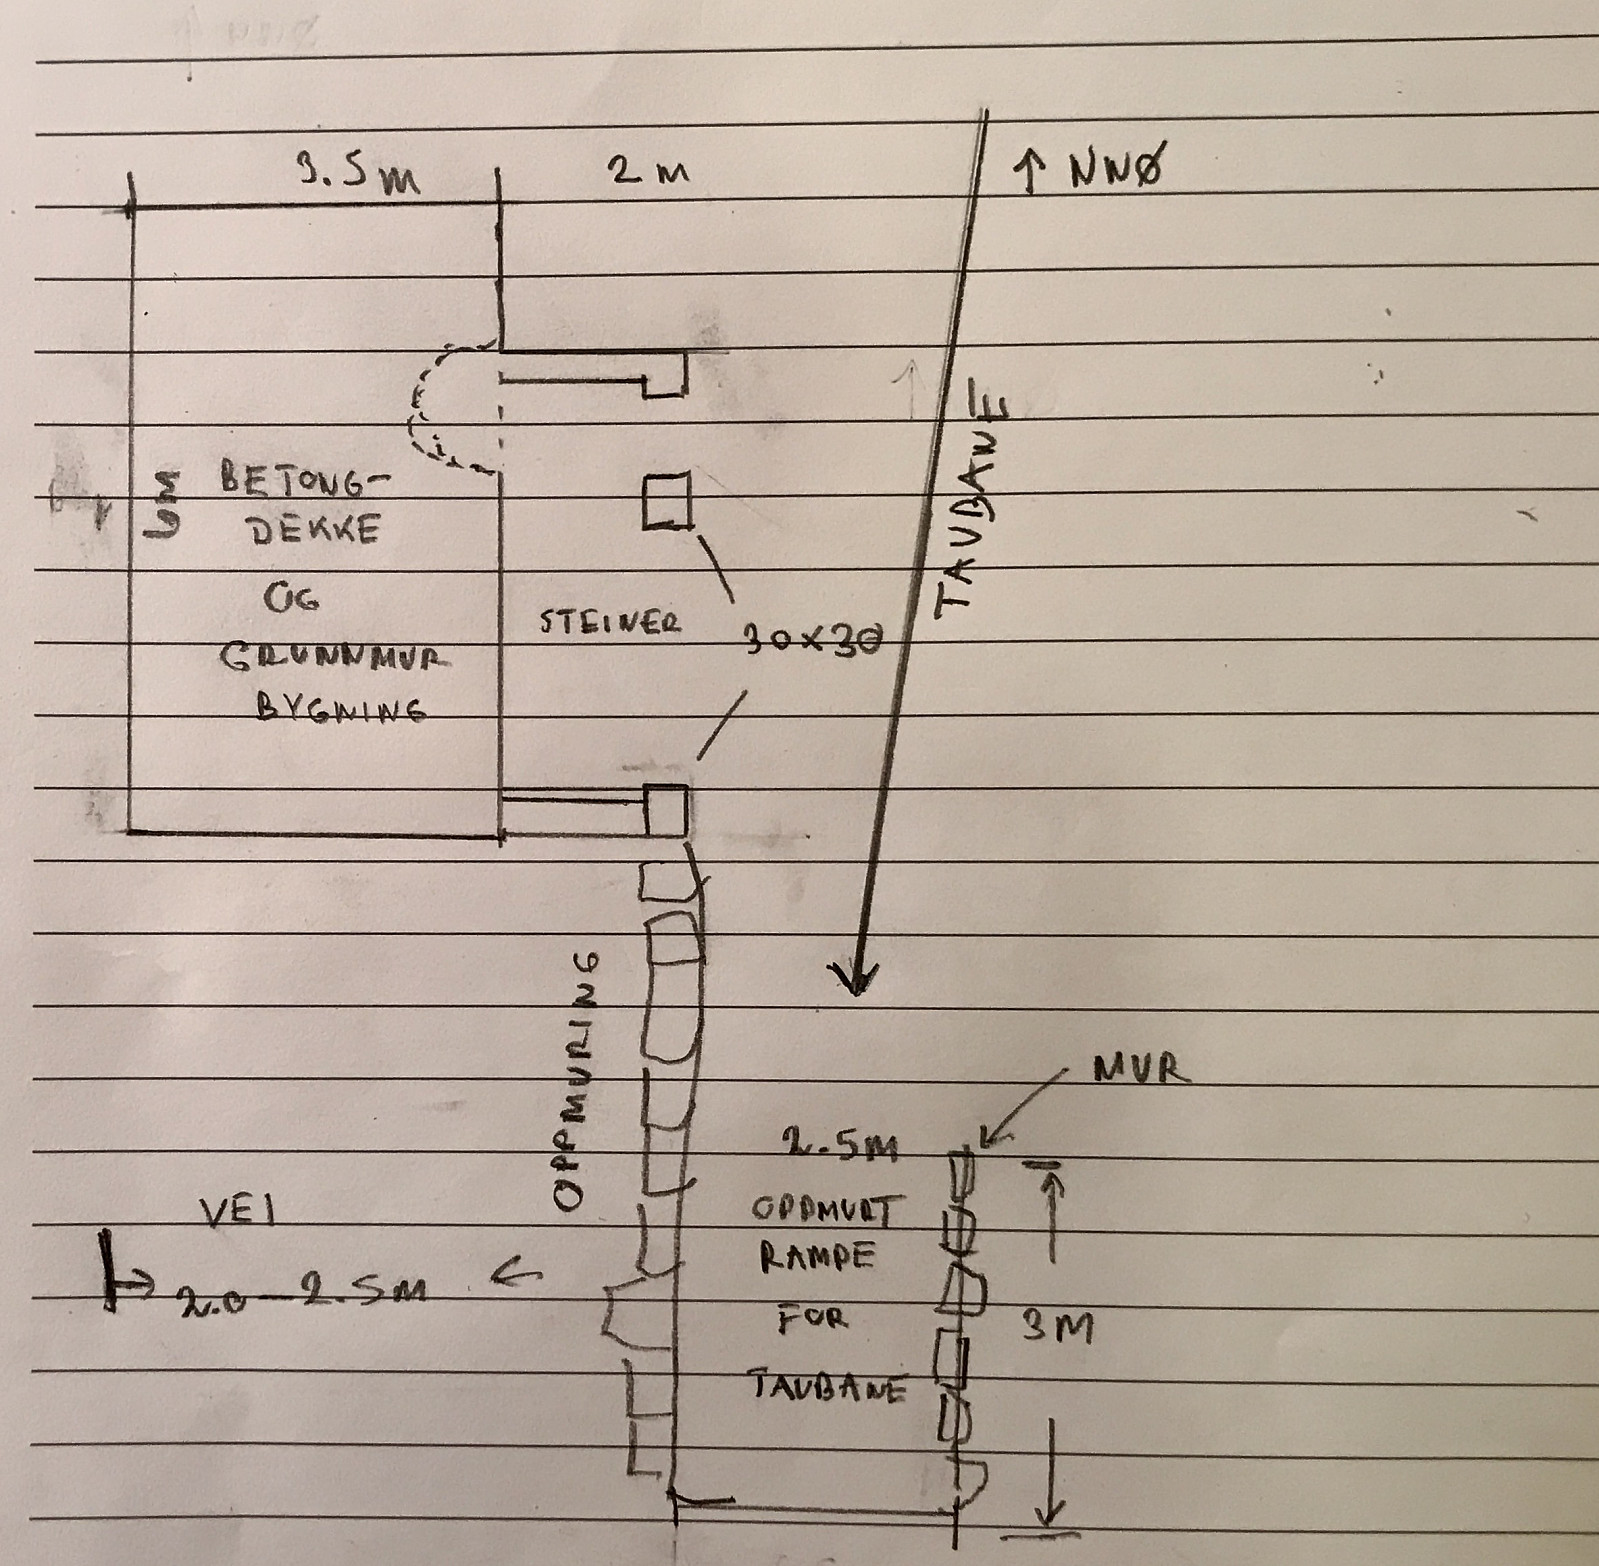 3.5m
2 m
↑ NNØ
TAUBANE
6m
BETONG-
DEKKE
OG
GRUNNMUR
BYGNING
STEINER
30x30
OPPMURING
MUR
2.5m
OPPMURT
RAMPE
FOR
TAUBANE
3M
VEI
2.0-2.5m